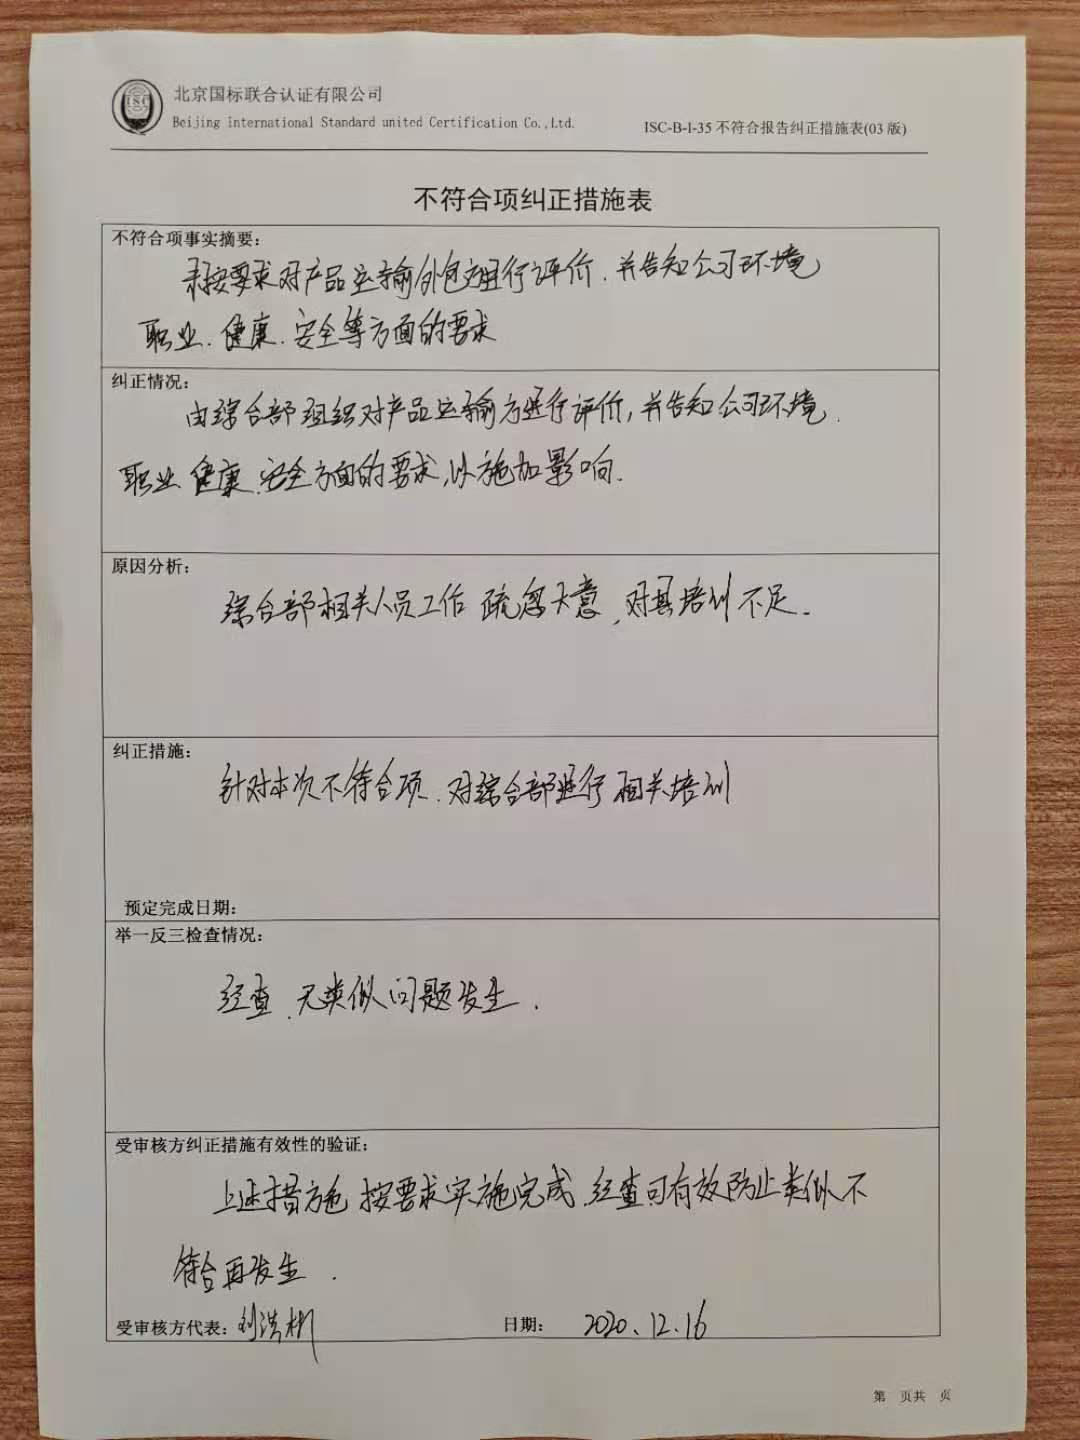 ISC
北京国标联合认证有限公司
Beijing International Standard united Certification Co.,Ltd.
ISC-B-I-35 不符合报告纠正措施表(03 版)
不符合项纠正措施表
不符合项事实摘要：
未按要求对产品运输外包方进行评价，并告知公司环境
职业、健康、安全等方面的要求
纠正情况：
由综合部组织对产品运输方进行评价，并告知公司环境、
职业、健康、安全方面的要求，以施加影响.
原因分析：
综合部相关人员工作疏忽大意，对其培训不足.
纠正措施：
针对本次不符合项，对综合部进行相关培训
预定完成日期：
举一反三检查情况：
经查，无类似问题发生.
受审核方纠正措施有效性的验证：
上述措施按要求实施完成，经查可有效防止类似不
符合再发生.
受审核方代表：刘浩
日期： 2020.12.16
第 页共 页